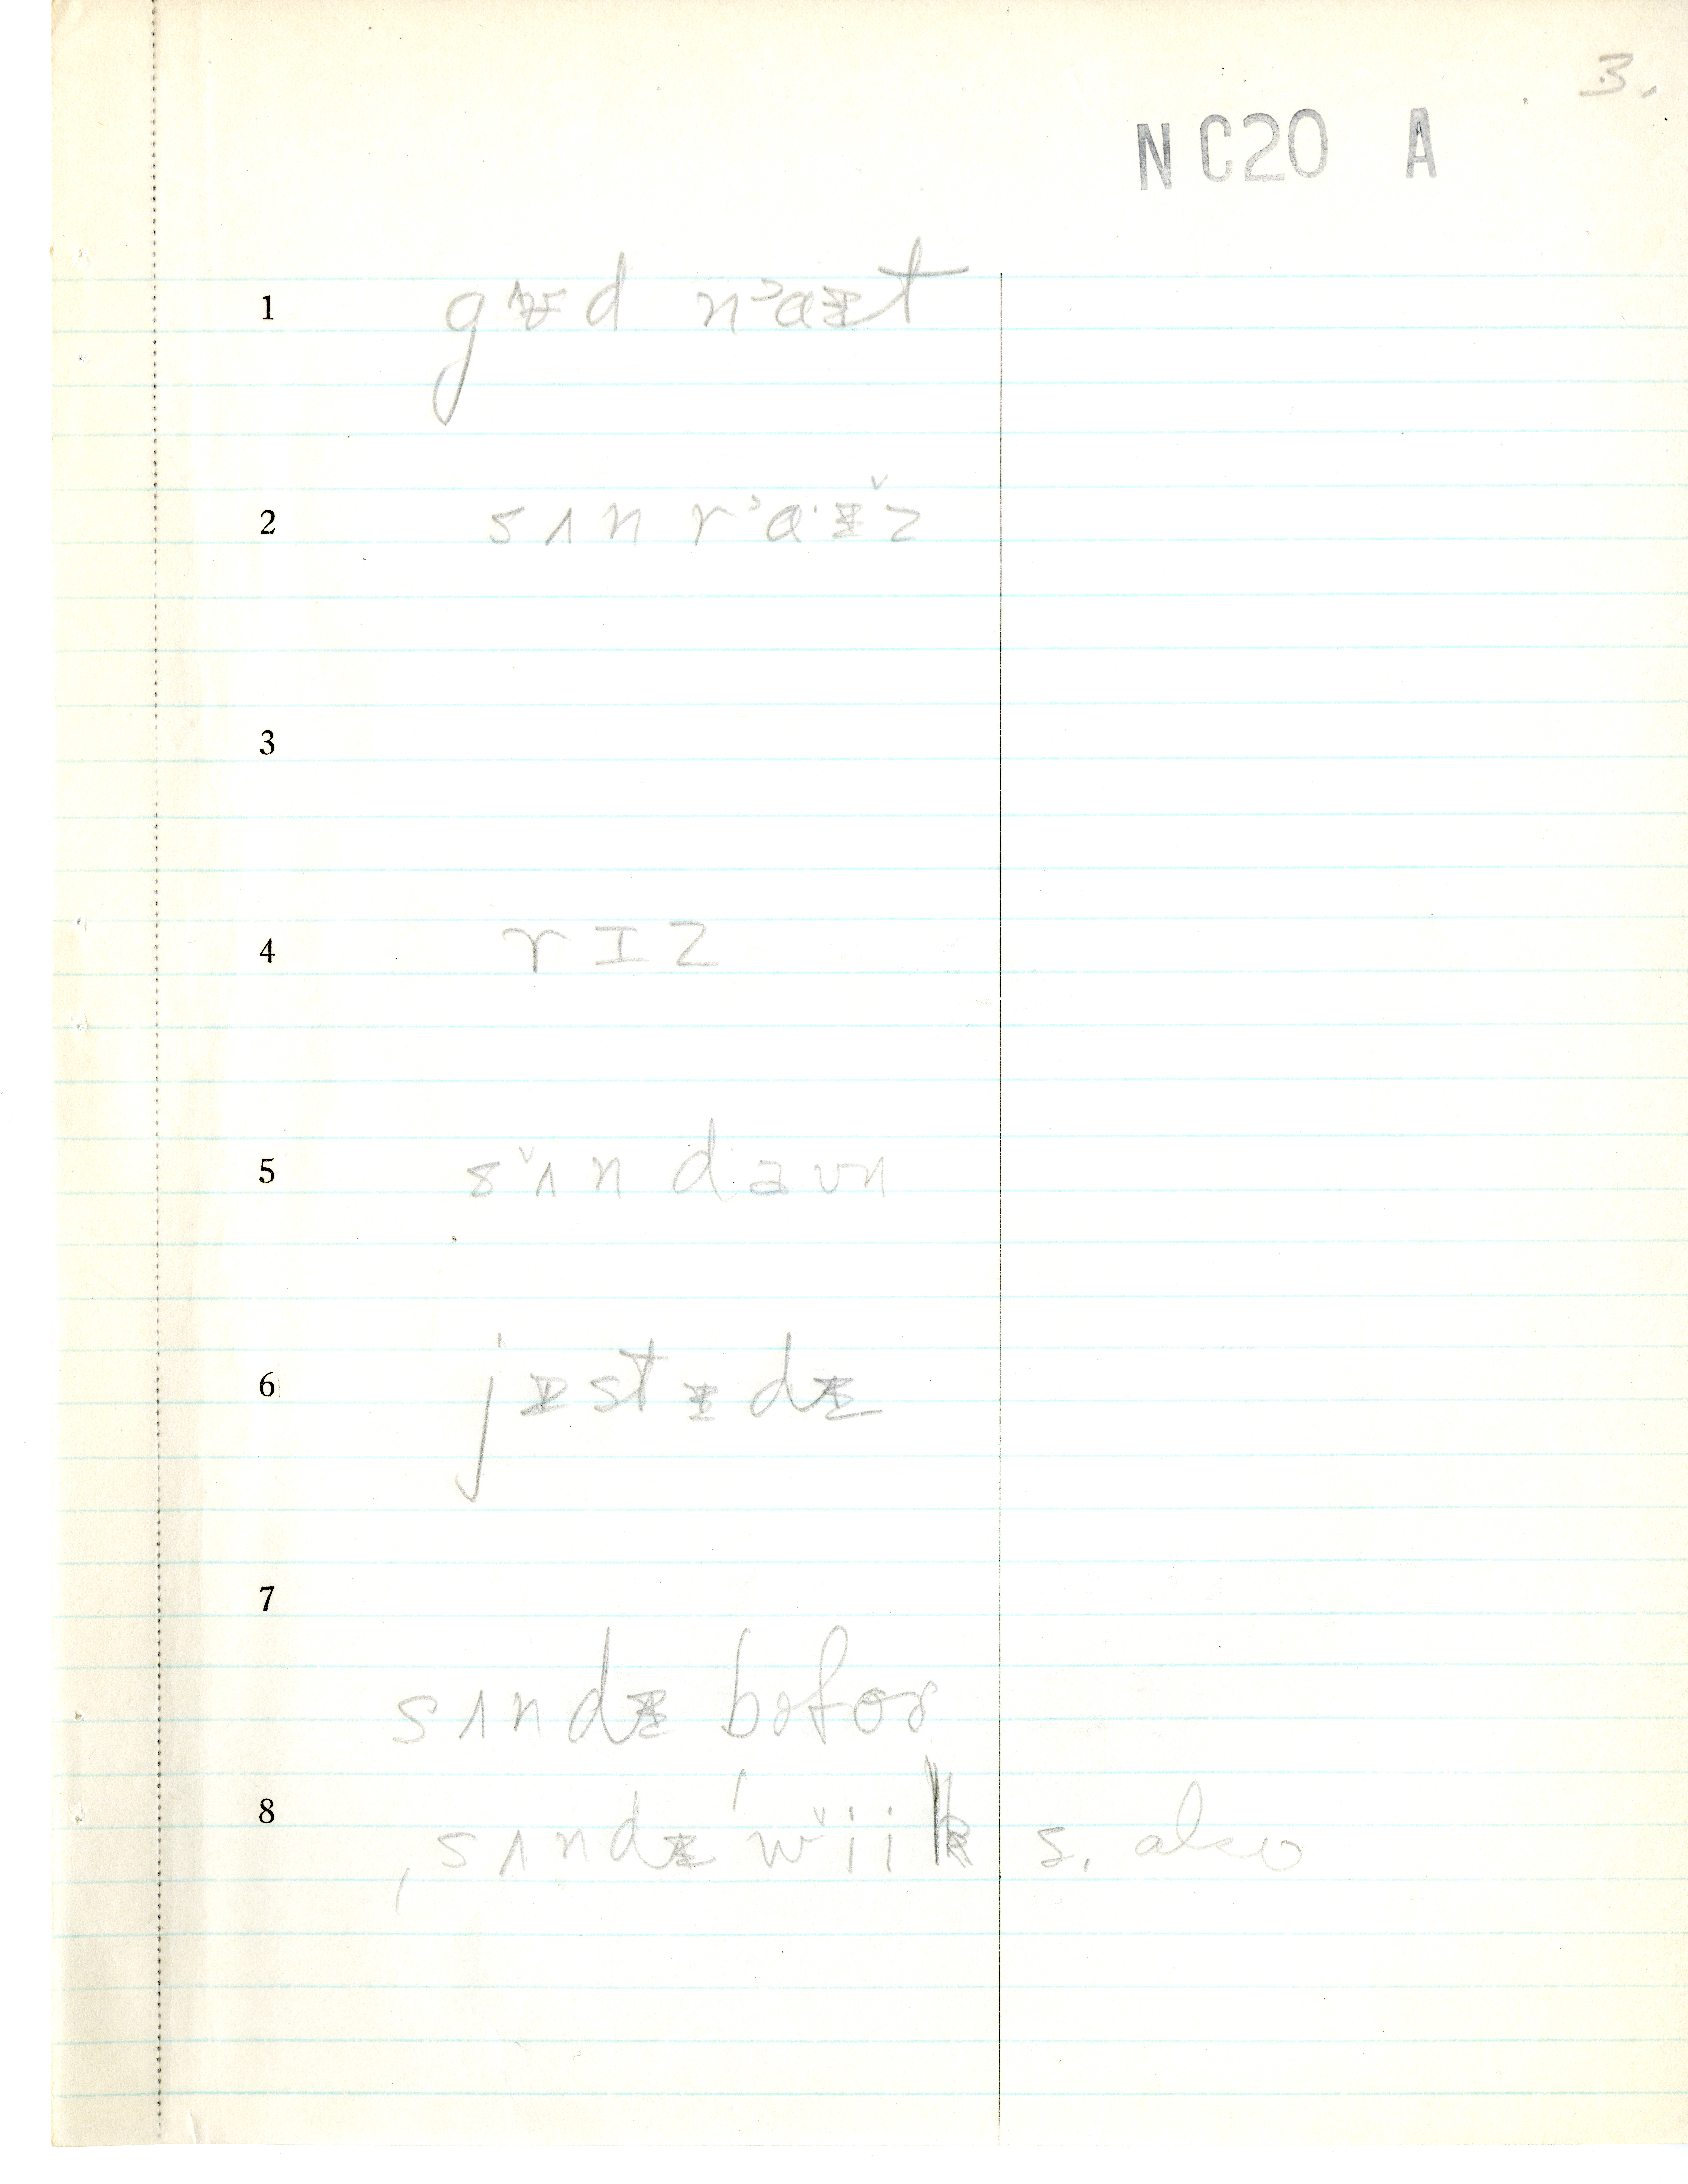 3.
NC20 A
1 gᵻʊd n˃aᵻt
2 sʌn r˃aˑᵻ̌z
3
4 rɪz
5 s˅ʌn daʊn
6 jɪstᵻdᵻ
7
sʌndᵻ bɚfoɚ
8 ˌsʌndᵻ ˈw˅iik s. also